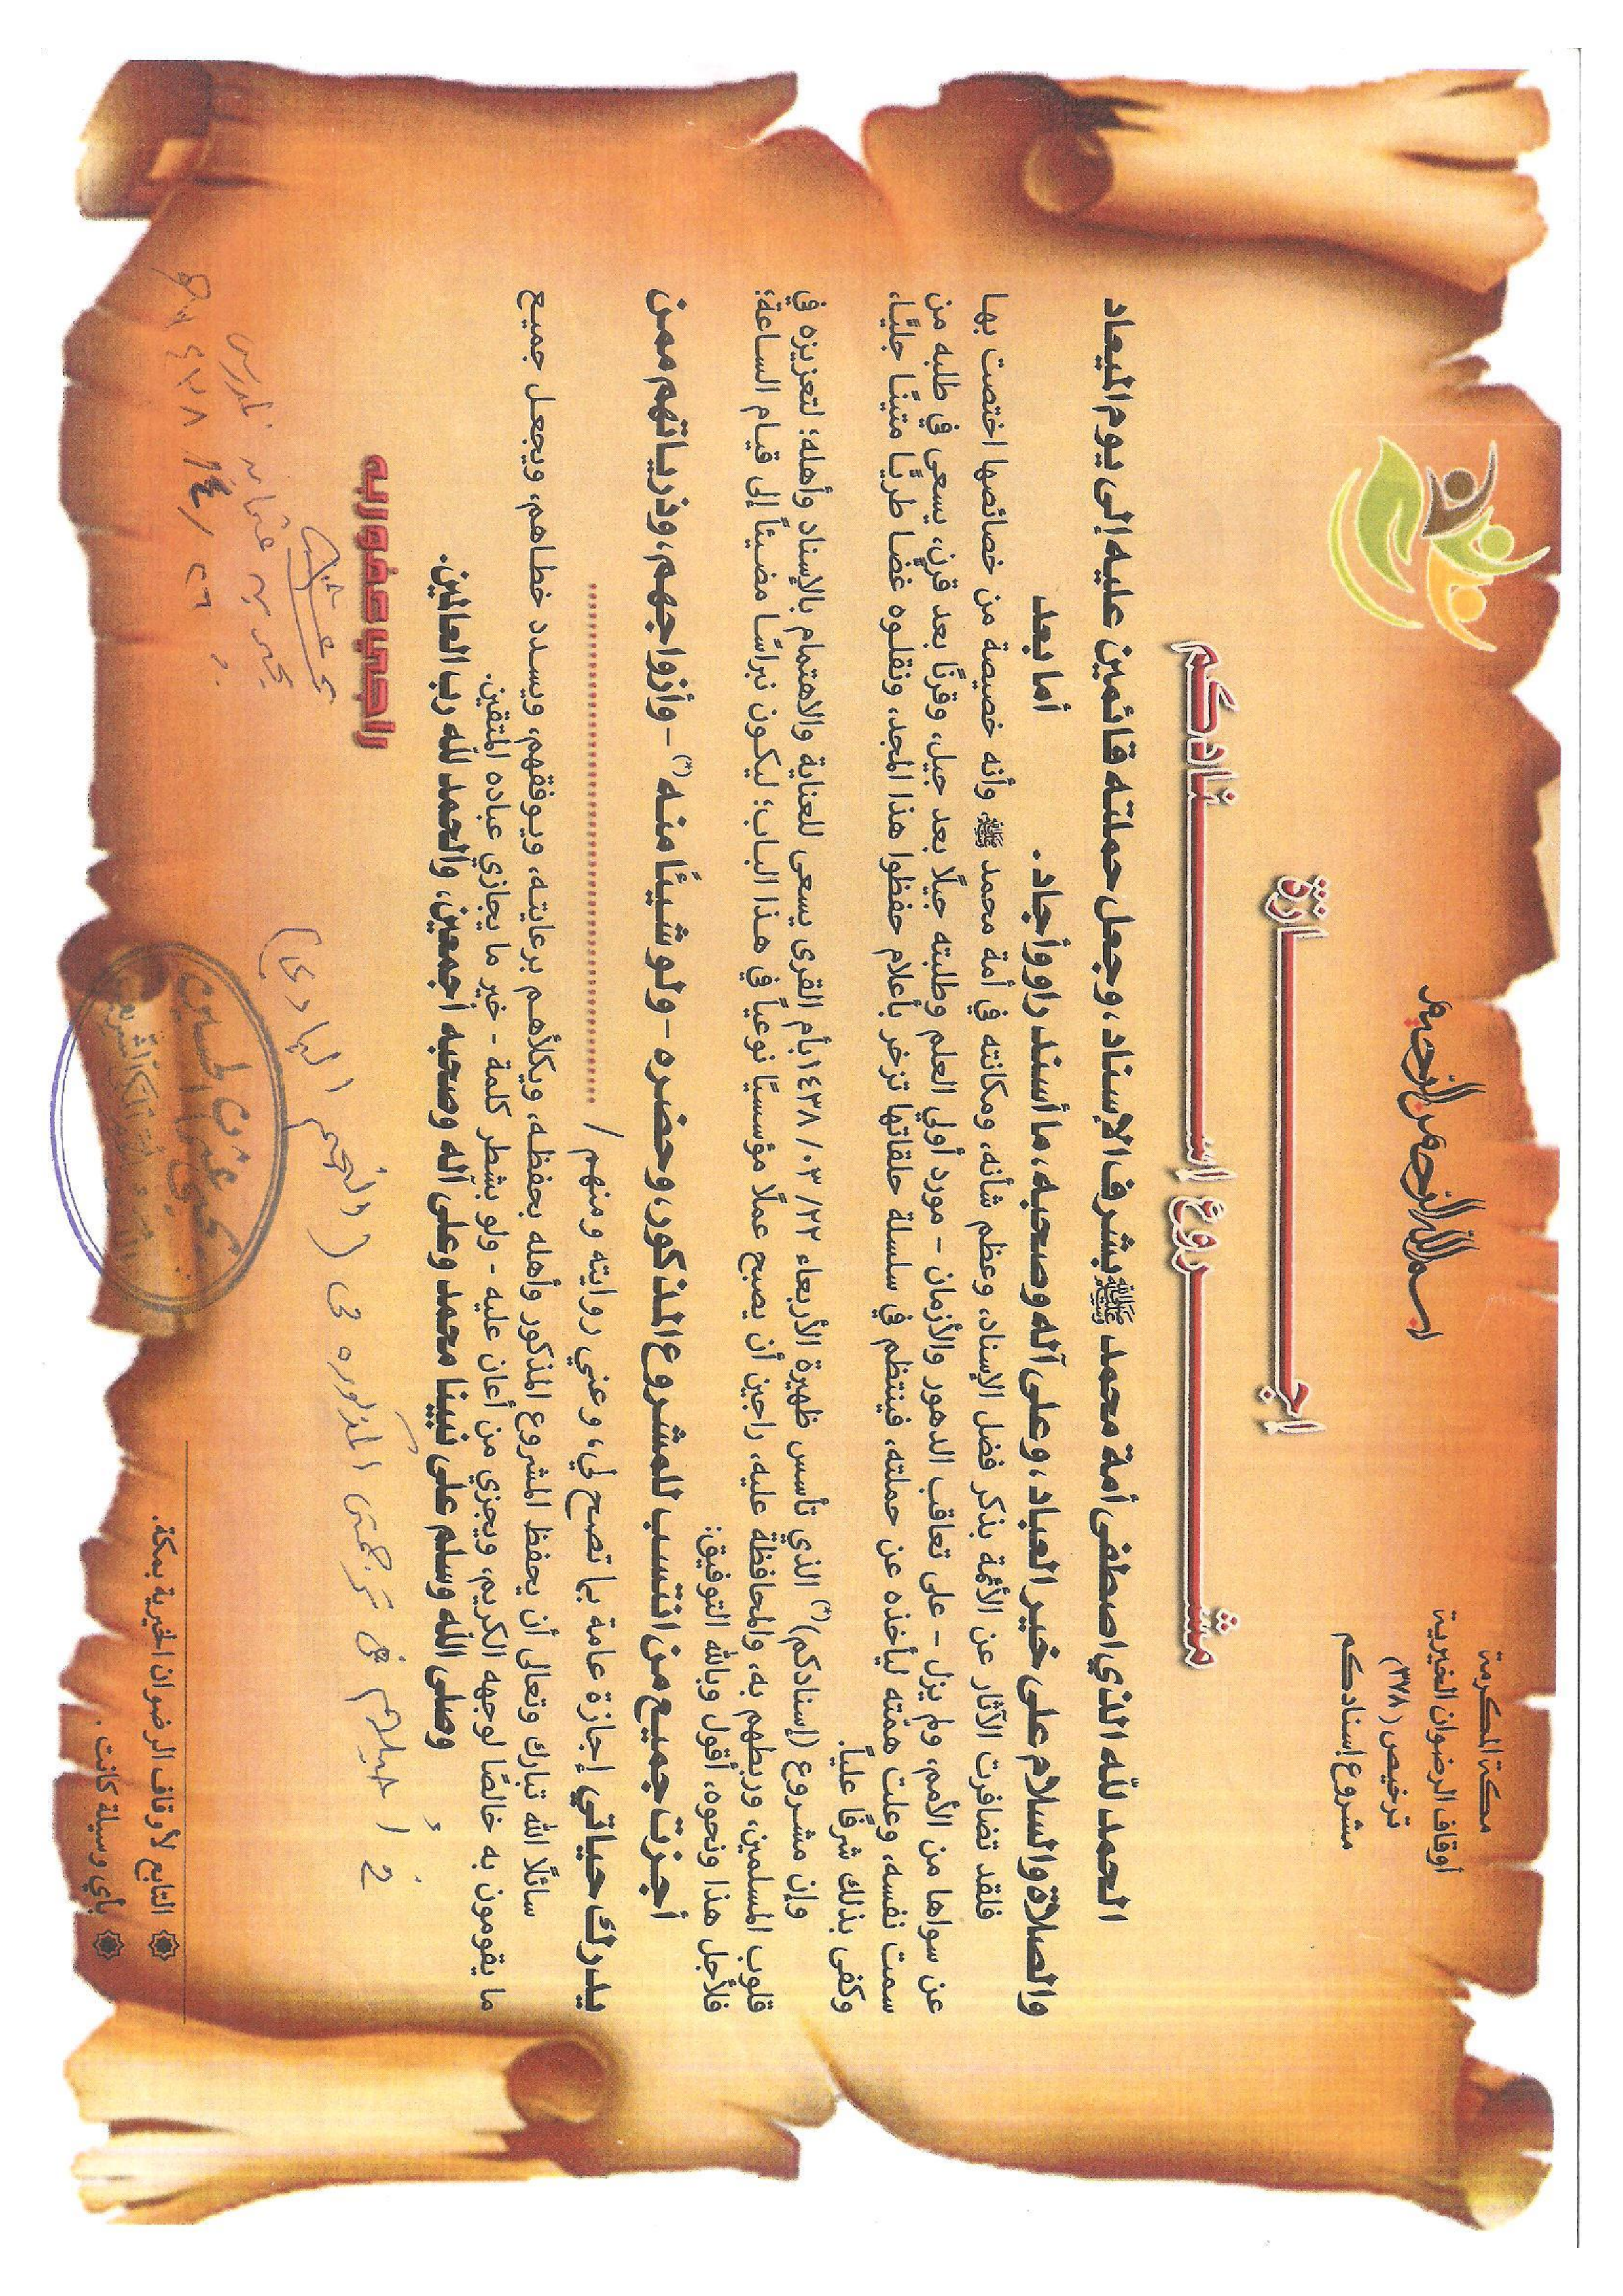 بسم الله الرحمن الرحيم
مكة المكرمة
أوقاف الرضوان الخيرية
ترخيص (٣٧٨)
مشروع إسنادكم
إجازة
مشروع إسنادكم
الحمد لله الذي اصطفى أمة محمد ﷺ بشرف الإسناد، وجعل حملته قائمين عليه إلى يوم الميعاد
والصلاة والسلام على خير العباد، وعلى آله وصحبه، ما أسند راو وأجاد. أما بعد
فلقد تضافرت الآثار عن الأئمة بذكر فضل الإسناد، وعظم شأنه، ومكانته في أمة محمد ﷺ، وأنه خصيصة من خصائصها اختصت بها
عن سواها من الأمم، ولم يزل - على تعاقب الدهور والأزمان - مورد أولي العلم وطلبته جيلًا بعد جيل، وقرنًا بعد قرن، يسعى في طلبه من
سمت نفسه، وعلت همّته ليأخذه عن حملته، فينتظم في سلسلة حلقاتها تزخر بأعلام حفظوا هذا المجد، ونقلوه غضًا طريًا متينًا جليًا،
وكفى بذلك شرفًا عليًا.
وإن مشروع (إسنادكم)(*) الذي تأسس ظهيرة الأربعاء ٢٢/٠٣/١٤٣٨ بأم القرى يسعى للعناية والاهتمام بالإسناد وأهله؛ لتعزيزه في
قلوب المسلمين، وربطهم به، والمحافظة عليه، راجين أن يصبح عملًا مؤسسيًا نوعياً في هذا الباب؛ ليكون نبراسًا مضيئاً إلى قيام الساعة؛
فلأجل هذا ونحوه، أقول وبالله التوفيق:
أجزت جميع من انتسب للمشروع المذكور، وحضره - ولو شيئًا منه(*) - وأزواجهم، وذرياتهم ممن
يدرك حياتي إجازة عامة بما تصح لي، وعني روايته ومنهم / ..............................
سائلًا الله تبارك وتعالى أن يحفظ المشروع المذكور وأهله بحفظه، ويكلأهم برعايته، ويوفقهم، ويسدد خطاهم، ويجعل جميع
ما يقومون به خالصًا لوجهه الكريم، ويجزي من أعان عليه - ولو بشطر كلمة - خير ما يجازي عباده المتقين.
وصلى الله وسلم على نبينا محمد وعلى آله وصحبه أجمعين، والحمد لله رب العالمين.
راجي عفو ربه
المذكوره في (النجم البادي)
يحيى بن عثمان المدرس
١٤٣٨/
التابع لأوقاف الرضوان الخيرية بمكة.
بأي وسيلة كانت.